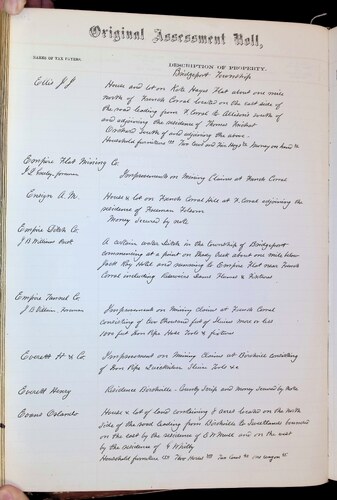 Original Assessment Roll,
NAMES OF TAX PAYERS.
DESCRIPTION OF PROPERTY.
Bridgeport Township
Ellis J J
House and lot on Kate Hays Flat about one mile
north of French Corral located on the east side of
the road leading from F. Corral to Allisons south of
and adjoining the residence of Thomas
Orchard South of and adjoining the above.
Household furniture Two Cows and Two Hogs Money on hand
Empire Flat Mining Co.
Improvements on Mining Claims at French Corral
Ensign A. M.
House & lot on French Corral at F. Corral adjoining the
residence of Freeman Folsom
Money secured by note
Empire Ditch Co.
J B Williams Prest
A certain water Ditch in the township of Bridgeport
commencing at a point on Shady Creek about one mile below
Jack Roy Hotel and running to Empire Flat near French
Corral including Reservoirs Dams Flumes & Fixtures
Empire Tunnel Co.
Improvements on Mining Claims at French Corral
consisting of Two thousand feet of Flume more or less
1000 feet Iron Pipe Hose Tools & fixtures
Everett H & Co
Improvement on Mining Claims at Birchville consisting
of Iron Pipe Quicksilver Flume Tools &c
Everett Henry
Residence Birchville County Scrip and money secured by note
Evans Orlando
House & lot of land containing 4 acres located on the north
side of the road leading from Birchville to Sweetlands bounded
on the east by the residence of and on the west
by the residence of
Household furniture Two Horses Two Cows one wagon